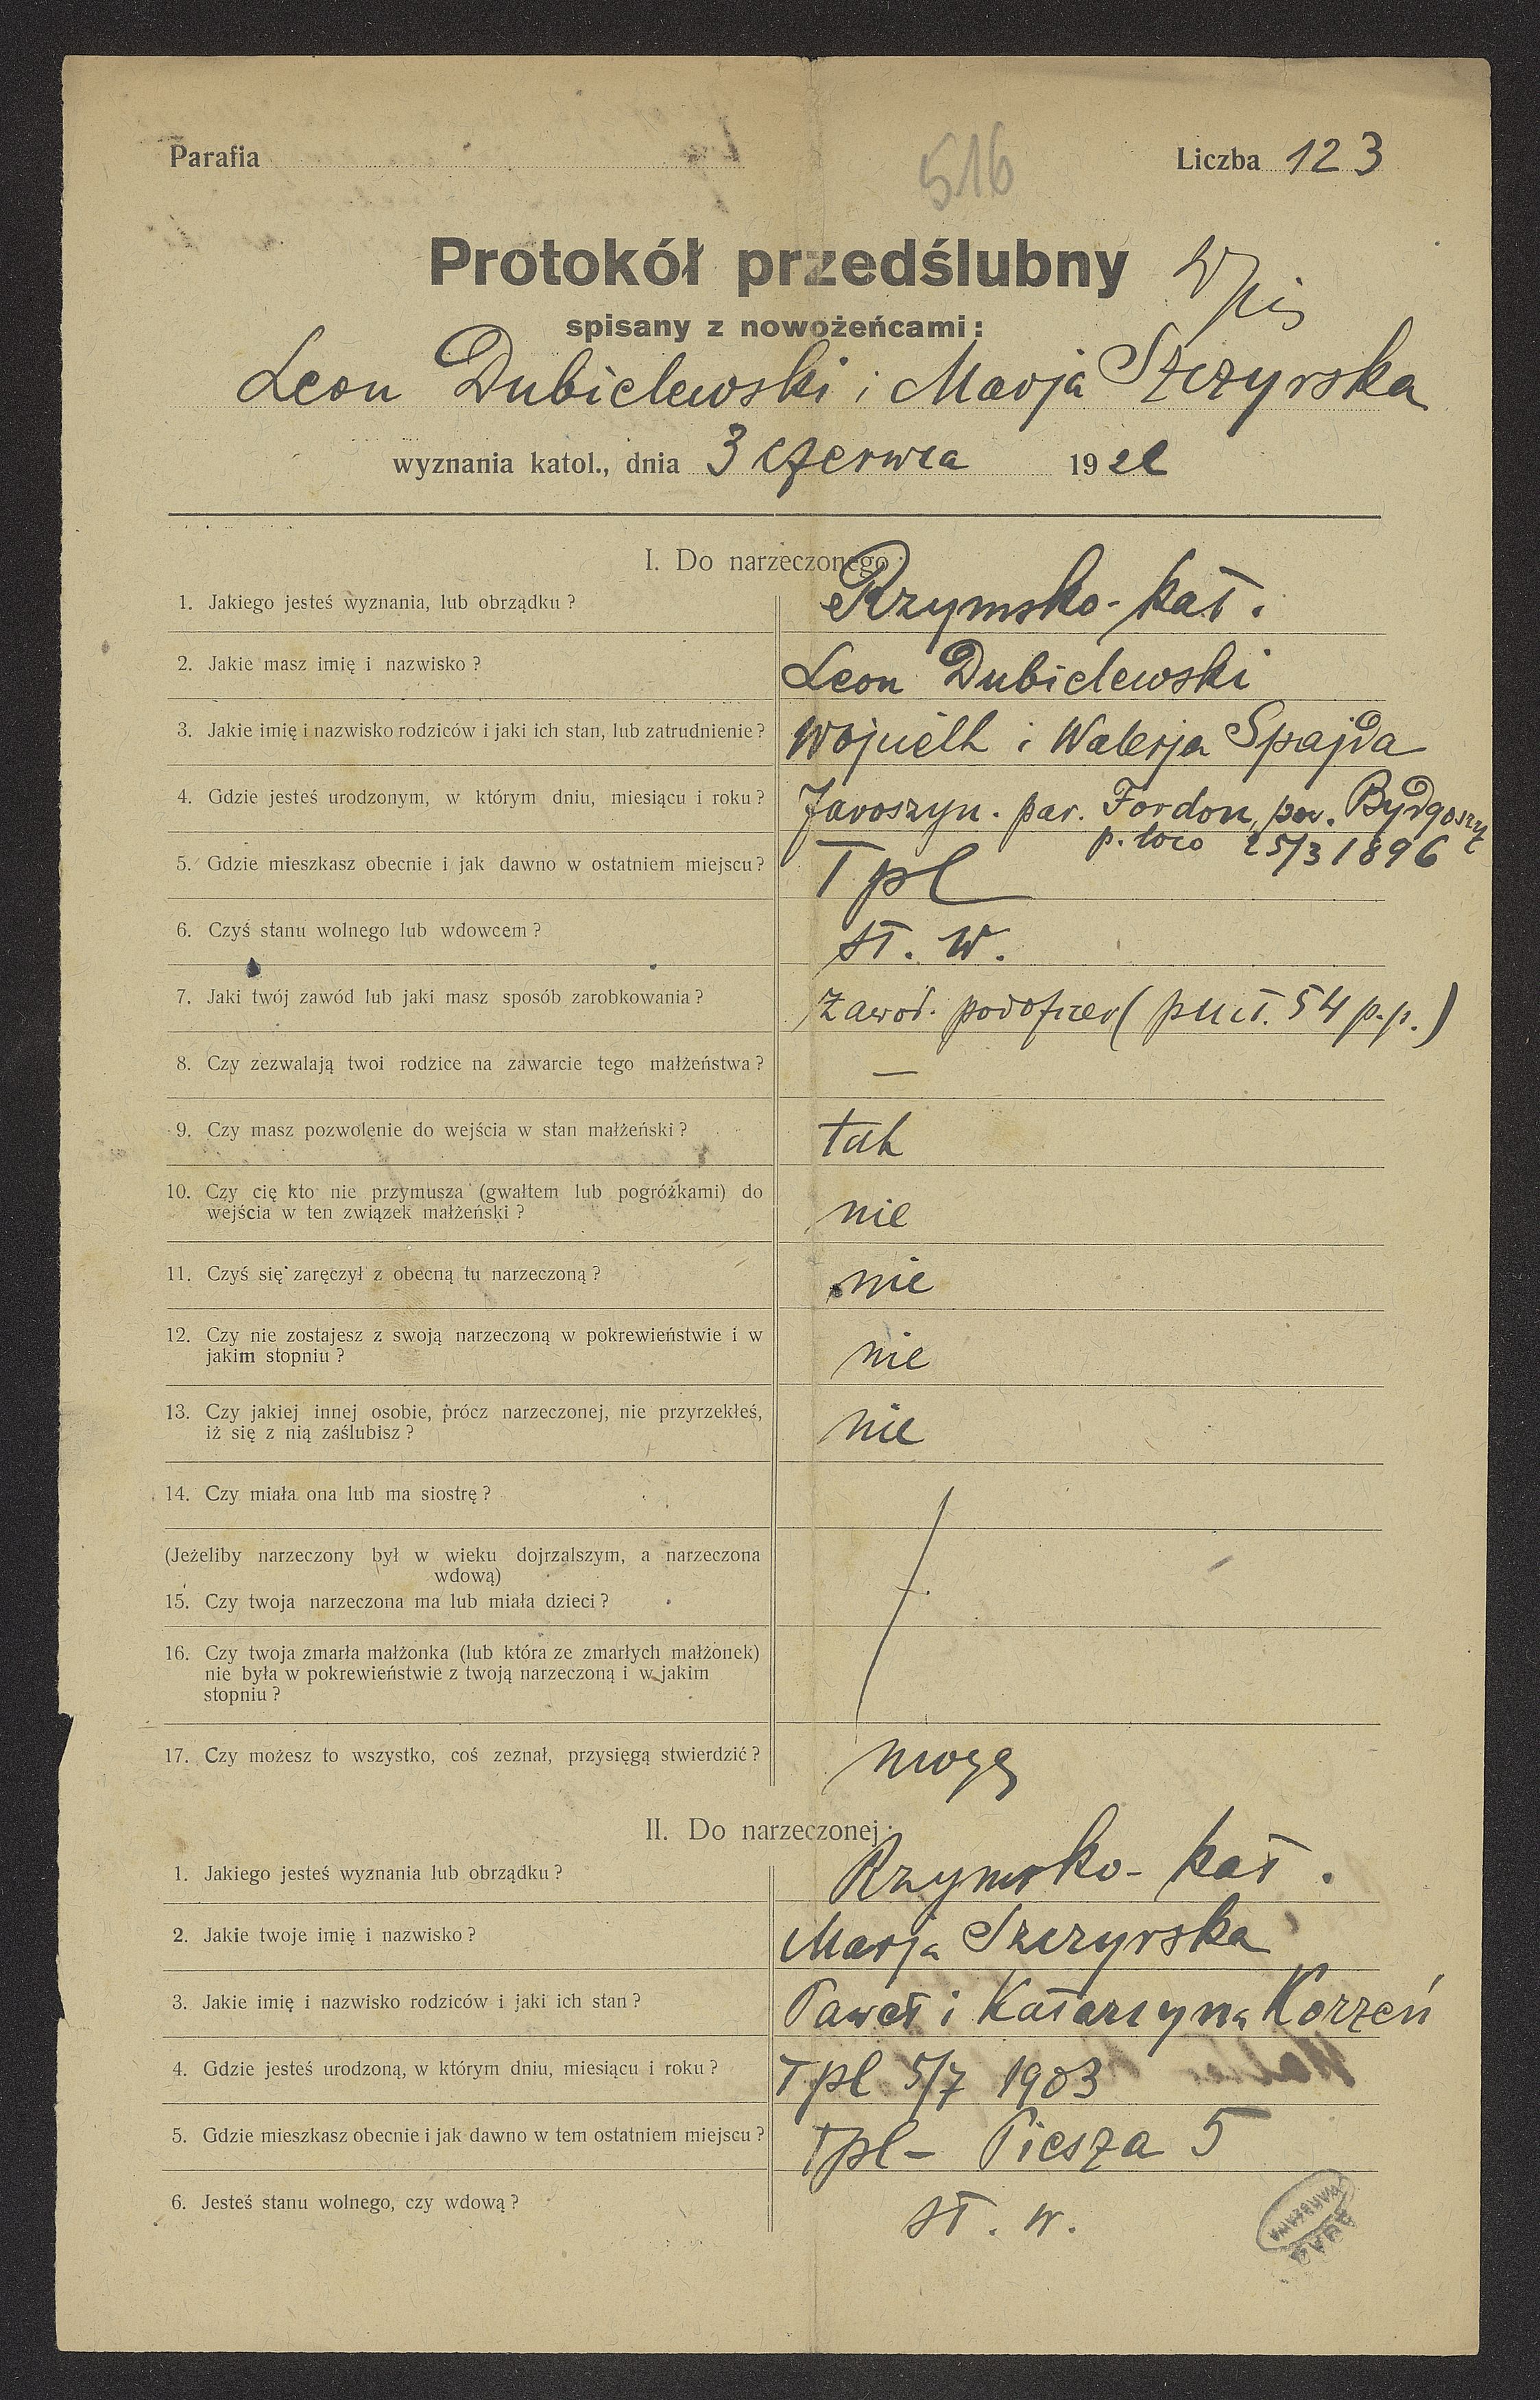 Parafia
516
Liczba 123
Protokół przedślubny
Wpis
spisany z nowożeńcami:
Leon Dubielewski i Marja Szczyrska
wyznania katol., dnia 3 czerwca 1922
I. Do narzeczonego:
1. Jakiego jesteś wyznania, lub obrządku? Rzymsko-kat.
2. Jakie masz imię i nazwisko? Leon Dubielewski
3. Jakie imię i nazwisko rodziców i jaki ich stan, lub zatrudnienie? Wojcieh i Walerja Spajda
4. Gdzie jesteś urodzonym, w którym dniu, miesiącu i roku? Jaroszyn. par. Fordon, pow. Bydgoszcz
p. loco 25/3 1896
5. Gdzie mieszkasz obecnie i jak dawno w ostatniem miejscu? Tpl
6. Czyś stanu wolnego lub wdowcem? st. w.
7. Jaki twój zawód lub jaki masz sposób zarobkowania? zawod. podoficer ( 54 p.p.)
8. Czy zezwalają twoi rodzice na zawarcie tego małżeństwa? —
9. Czy masz pozwolenie do wejścia w stan małżeński? tak
10. Czy cię kto nie przymusza (gwałtem lub pogróżkami) do
wejścia w ten związek małżeński? nie
11. Czyś się zaręczył z obecną tu narzeczoną? nie
12. Czy nie zostajesz z swoją narzeczoną w pokrewieństwie i w
jakim stopniu? nie
13. Czy jakiej innej osobie, prócz narzeczonej, nie przyrzekłeś,
iż się z nią zaślubisz? nie
14. Czy miała ona lub ma siostrę?
(Jeżeliby narzeczony był w wieku dojrzalszym, a narzeczona
wdową)
15. Czy twoja narzeczona ma lub miała dzieci?
16. Czy twoja zmarła małżonka (lub która ze zmarłych małżonek)
nie była w pokrewieństwie z twoją narzeczoną i w jakim
stopniu?
17. Czy możesz to wszystko, coś zeznał, przysięgą stwierdzić? mogę
II. Do narzeczonej:
1. Jakiego jesteś wyznania lub obrządku? Rzymsko-kat.
2. Jakie twoje imię i nazwisko? Marja Szczyrska
3. Jakie imię i nazwisko rodziców i jaki ich stan? Paweł i Katarzyna Korzeń
4. Gdzie jesteś urodzoną, w którym dniu, miesiącu i roku? Tpl 5/7 1903
5. Gdzie mieszkasz obecnie i jak dawno w tem ostatniem miejscu? Tpl - Piesza 5
6. Jesteś stanu wolnego, czy wdową? st. w.